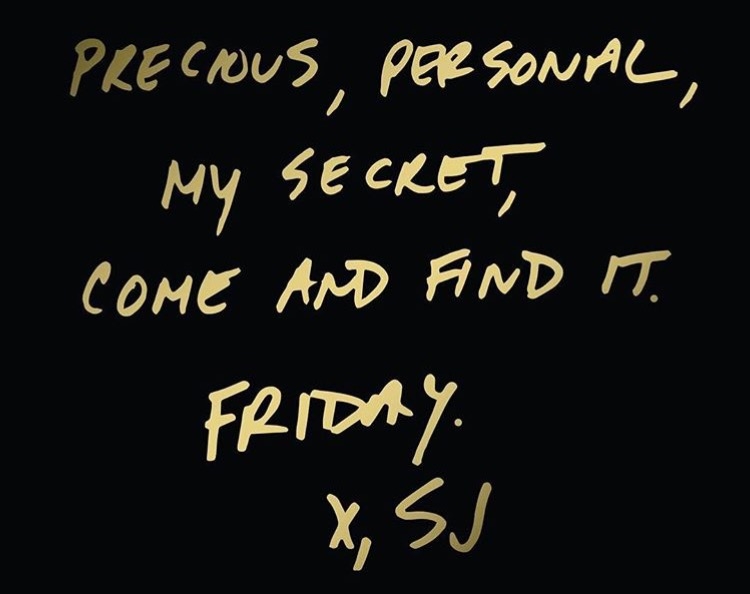 PRECIOUS, PERSONAL,
MY SECRET,
COME AND FIND IT.
FRIDAY.
X, SJ